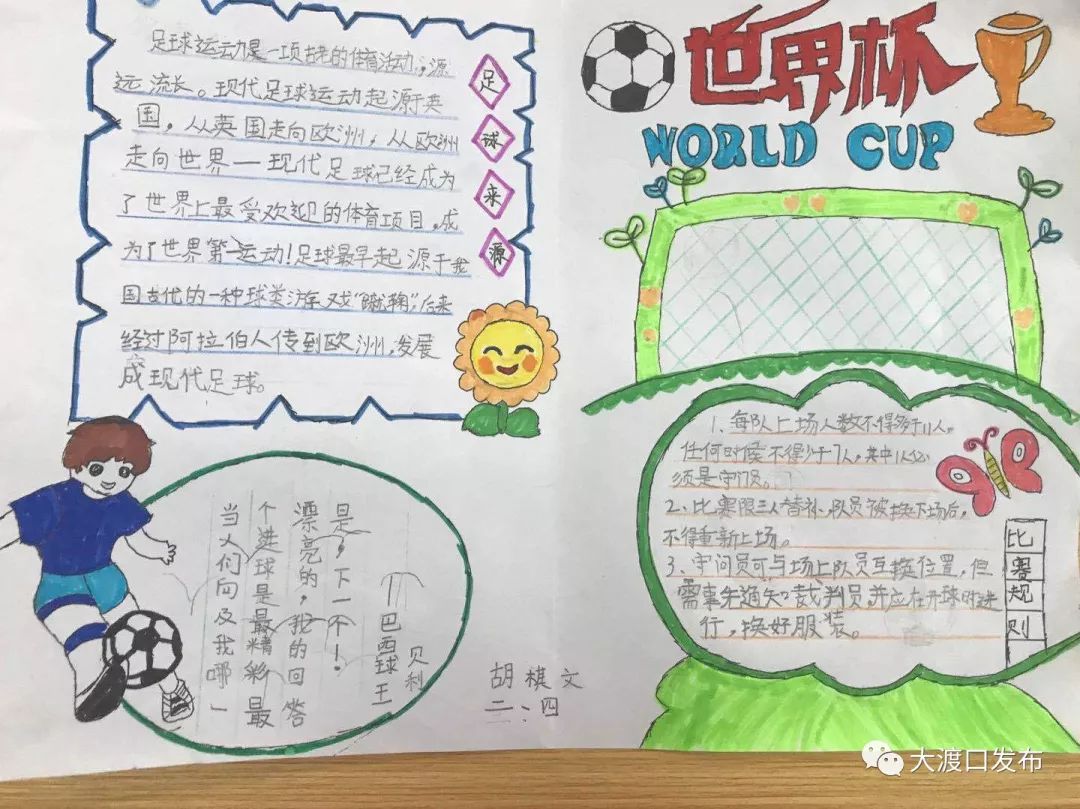 足球运动是一项古老的体育活动，源
远流长。现代足球运动起源于英
国，从英国走向欧洲，从欧洲
走向世界—现代足球已经成为
了世界上最受欢迎的体育项目，成
为了世界第一运动！足球最早起源于我
国古代的一种球类游戏“蹴鞠”，后来
经过阿拉伯人传到欧洲，发展
成现代足球。
足球来源
世界杯
WORLD CUP
当人们问及我哪一
个进球是最精彩、最
漂亮的，我的回答
是，下一个！
——巴西球王
贝利
胡棋文
二、四
1、每队上场人数不得多于11人，
任何时候不得少于7人，其中1人必
须是守门员。
2、比赛限三人替补，队员被换下场后，
不得重新上场。
3、守门员可与场上队员互换位置，但
需事先通知裁判员，并应在开球时进
行，换好服装。
比赛规则
大渡口发布